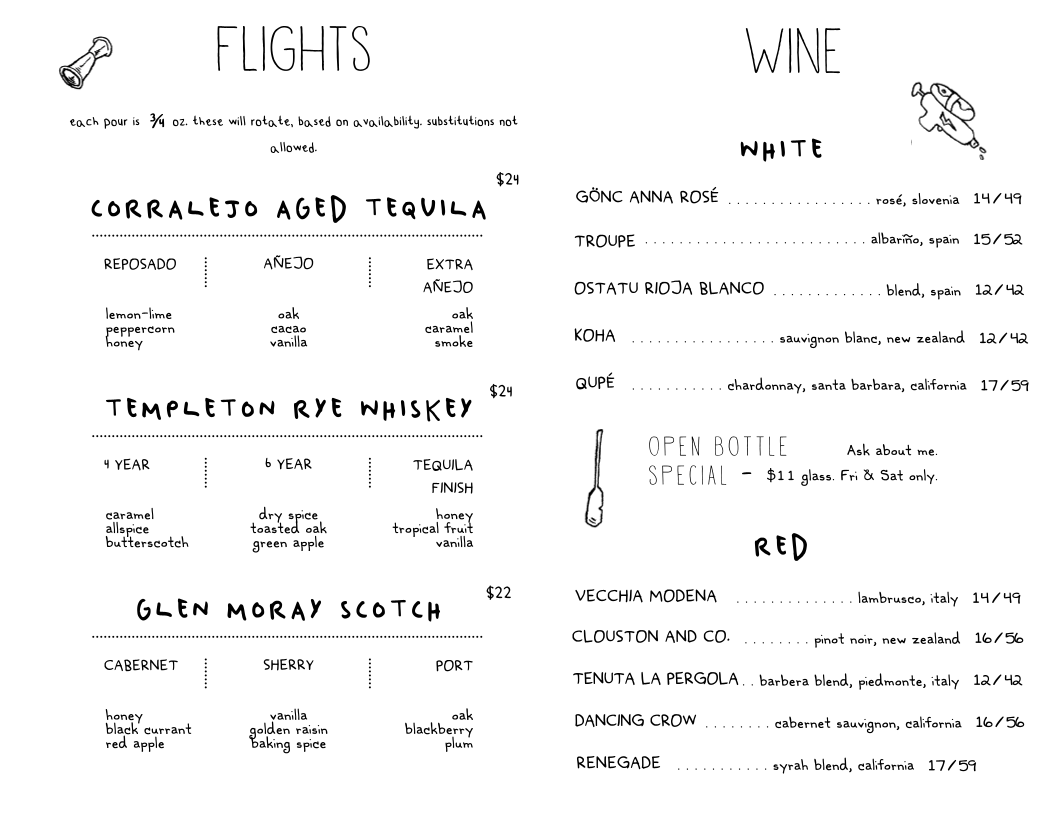 FLIGHTS
each pour is 3/4 oz. these will rotate, based on availability. substitutions not
allowed.
$24
CORRALEJO AGED TEQUILA
REPOSADO AÑEJO EXTRA
AÑEJO
lemon-lime oak oak
peppercorn cacao caramel
honey vanilla smoke
$24
TEMPLETON RYE WHISKEY
4 YEAR 6 YEAR TEQUILA
FINISH
caramel dry spice honey
allspice toasted oak tropical fruit
butterscotch green apple vanilla
$22
GLEN MORAY SCOTCH
CABERNET SHERRY PORT
honey vanilla oak
black currant golden raisin blackberry
red apple baking spice plum
WINE
WHITE
GÖNC ANNA ROSÉ . . . . . . . . . . . . . . . . . rosé, slovenia 14/49
TROUPE . . . . . . . . . . . . . . . . . . . . . . . . . . albariño, spain 15/52
OSTATU RIOJA BLANCO . . . . . . . . . . . . . blend, spain 12/42
KOHA . . . . . . . . . . . . . . . . . sauvignon blanc, new zealand 12/42
QUPÉ . . . . . . . . . . . chardonnay, santa barbara, california 17/59
OPEN BOTTLE Ask about me.
SPECIAL - $11 glass. Fri & Sat only.
RED
VECCHIA MODENA . . . . . . . . . . . . . . lambrusco, italy 14/49
CLOUSTON AND CO. . . . . . . . . pinot noir, new zealand 16/56
TENUTA LA PERGOLA . . barbera blend, piedmonte, italy 12/42
DANCING CROW . . . . . . . . cabernet sauvignon, california 16/56
RENEGADE . . . . . . . . . . . syrah blend, california 17/59